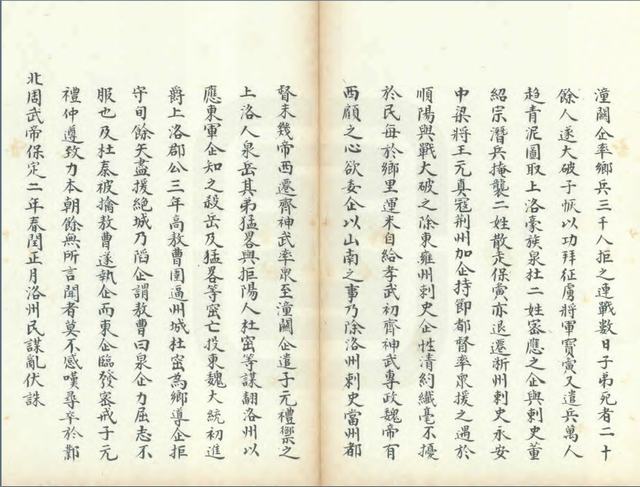 潼關企率鄉兵三千人拒之連戰數日子弟死者二十
餘人遂大破子恢以功拜征虜將軍寶寅又遣兵萬人
趨青泥圖取上洛豪族泉杜二姓密應之企與刺史董
紹宗潛兵掩襲二姓散走保寅亦退遷淅州刺史永安
中梁將王元真寇荆州加企持節都督率眾援之遇於
順陽與戰大破之除東雍州刺史企性清約纖毫不擾
於民每於鄉里運米自給孝武初齊神武專政魏帝有
西顧之心欲委企以山南之事乃除洛州刺史當州都
督未幾帝西遷齊神武率眾至潼關企遣子元禮禦之
上洛人泉岳其弟猛畧與拒陽人杜密等謀翻洛州以
應東軍企知之殺岳及猛畧等密亡投東魏大統初進
爵上洛郡公三年高敖曹圍逼州城杜密為鄉導企拒
守旬餘矢盡援絕城乃陷企謂敖曹曰泉企力屈志不
服也及杜秦被擒敖曹遂執企而東企臨發密戒子元
禮仲遵致力本朝餘無所言聞者莫不感嘆尋卒於鄴
北周武帝保定二年春閏正月洛州民謀亂伏誅